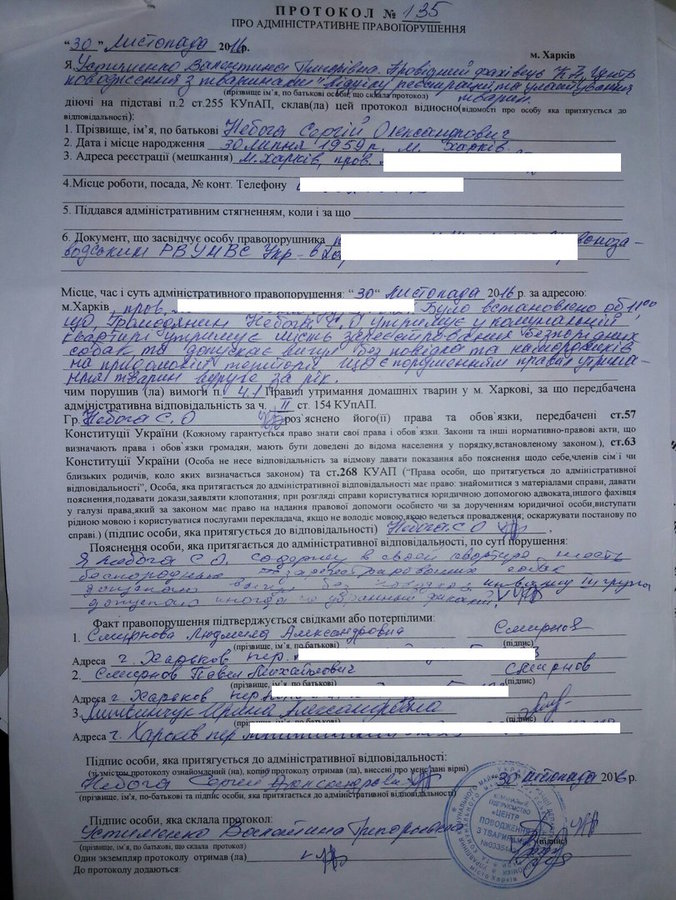 ПРОТОКОЛ № 135
ПРО АДМІНІСТРАТИВНЕ ПРАВОПОРУШЕННЯ
"30" Листопада 2016р. м. Харків
Я, Устименко Валентина Григорівна, Провідний фахівець КП "Центр
поводження з тваринами" відділу реєстрації та
(прізвище, ім'я, по батькові особи, що склала протокол) тварин
діючи на підставі п.2 ст.255 КУпАП, склав(ла) цей протокол відносно(відомості про особу яка притягується до
відповідальності):
1. Прізвище, ім'я, по батькові Небога Сергій Олександрович
2. Дата і місце народження 30 липня 1959 р. м. Харків
3. Адреса реєстрації (мешкання) м.Харків, пров.
4.Місце роботи, посада, № конт. Телефону
5. Піддався адміністративним стягненням, коли і за що
6. Документ, що засвідчує особу правопорушника
РВУМВС Укр-
Місце, час і суть адміністративного правопорушення: "30" Листопада 2016 р. за адресою:
м.Харків, пров. Було встановлено об 11 00
що, Громадянин Небога С. О утримує у комунальній
квартирі утримує шість зареєстрованих безпорідних
собак та допускає вигул без повідка та намордників
на території що є порушенням правил утриман-
ня тварин вдруге за рік.
чим порушив (ла) вимоги п. 4.1 Правил утримання домашніх тварин у м. Харкові, за що передбачена
адміністративна відповідальність за ч. II ст. 154 КУпАП.
Гр. Небога С. О роз'яснено його(її) права та обов'язки, передбачені ст.57
Конституції України (Кожному гарантується право знати свої права і обов'язки. Закони та інші нормативно-правові акти, що
визначають права і обов'язки громадян, мають бути доведені до відома населення у порядку,встановленому законом.), ст.63
Конституції України (Особа не несе відповідальність за відмову давати показання або пояснення щодо себе,членів сім'ї чи
близьких родичів, коло яких визначається законом) та ст.268 КУАП ("Права особи, що притягується до адміністративної
відповідальності", Особа, яка притягується до адміністративної відповідальності має право: знайомитися з матеріалами справи, давати
пояснення,подавати докази,заявляти клопотання; при розгляді справи користуватися юридичною допомогою адвоката,іншого фахівця
у галузі права,який за законом має право на надання правової допомоги особисто чи за дорученням юридичної особи,виступати
рідною мовою і користуватися послугами перекладача, якщо не володіє мовою,якою ведеться провадження, оскаржувати постанову по
справі.) (підпис особи, яка притягується до відповідальності) Небога С.О
Пояснення особи, яка притягається до адміністративної відповідальності, по суті порушення:
Я Небога С. О. содержу в своей квартире шесть
беспородных зарегистрированных собак
допускаю без поводка
допускаю иногда
Факт правопорушення підтверджується свідками або потерпілими:
1. Смирнова Людмила Александровна Смирнов
(прізвище, ім'я, по батькові) (підпис)
Адреса г. Харьков пер.
2. Смирнов Павел Михайлович Смирнов
(прізвище, ім'я, по батькові) (підпис)
Адреса г. Харьков пер
3. Ирина Александровна
(прізвище, ім'я, по батькові) (підпис)
Адреса г. Харьков пер
Підпис особи, яка притягається до адміністративної відповідальності:
(зі змістом протоколу ознайомлений (на), копію протоколу отримав (ла), внесені про мене дані вірні)
Небога Сергей "30" листопада 2016 р.
(прізвище, ім'я, по-батькові та підпис особи, яка притягається до адміністративної відповідальності)
Підпис особи, яка склала протокол:
Устименко Валентина Григорьевна
(прізвище, ім'я, по батькові особи, що склала протокол) (підпис)
Один экземпляр протоколу отримав (ла)
До протоколу додаються:
"ЦЕНТР
ПОВОДЖЕННЯ
З ТВАРИНАМИ"
місто Харків